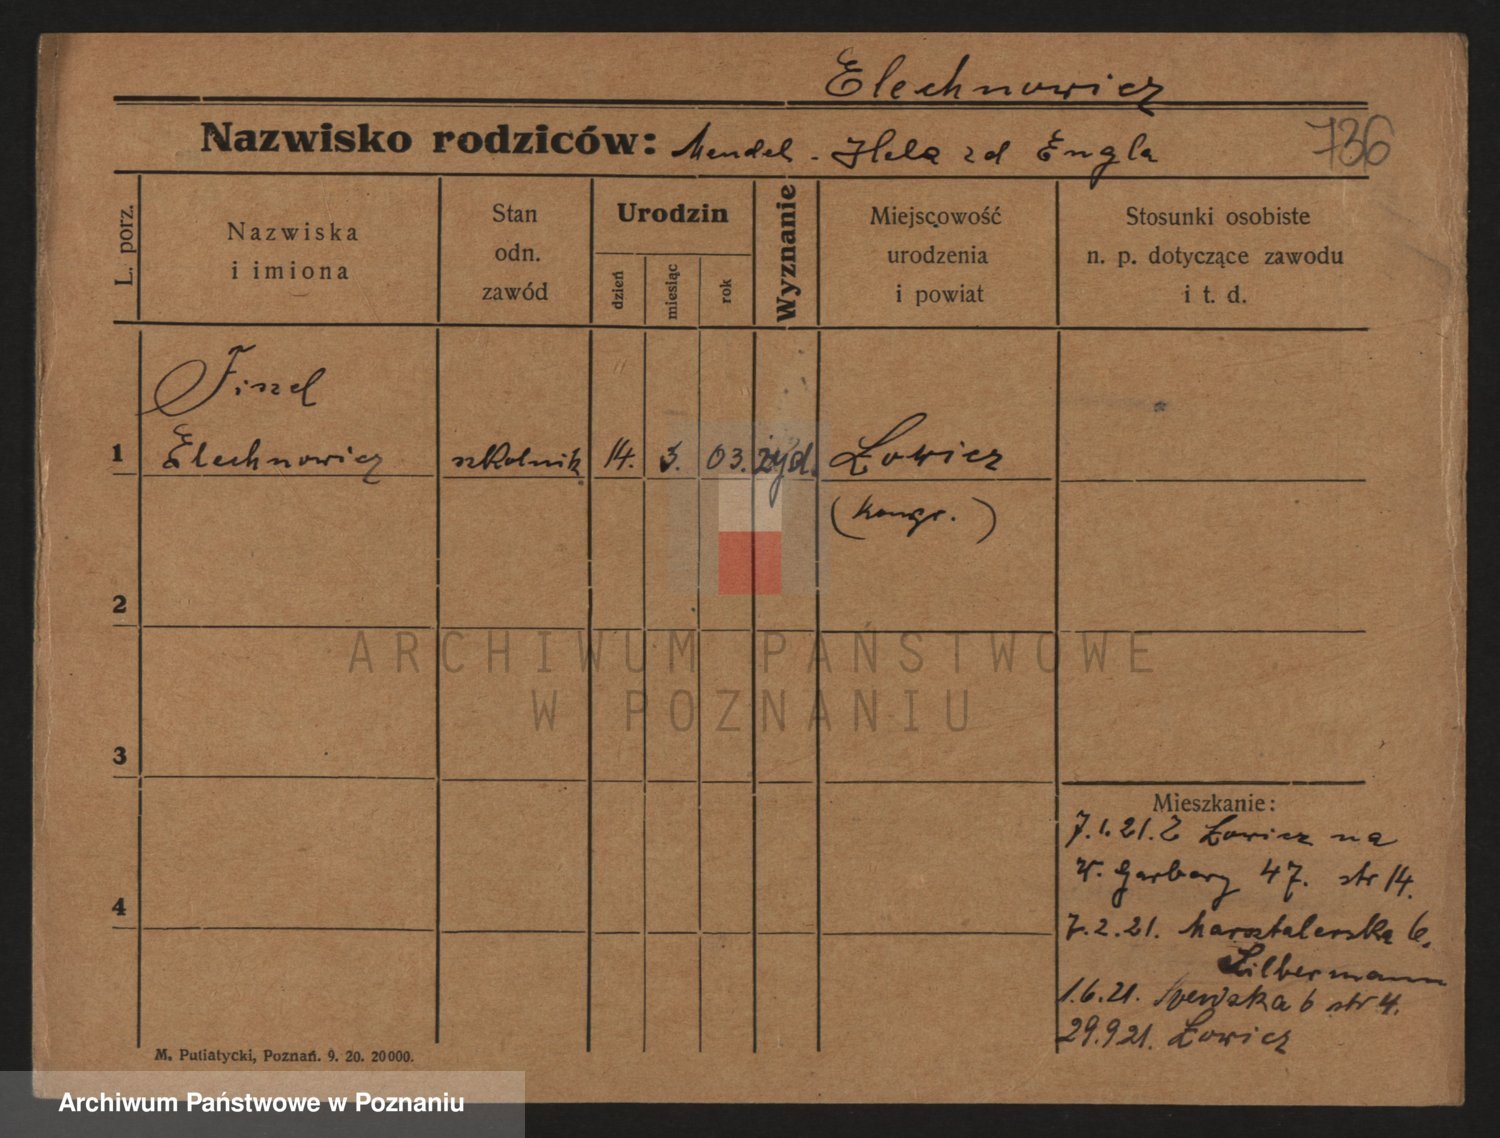 Elechnowicz
Nazwisko rodziców: Mendel - Hela zd Engla
736
L. porz.
Nazwiska
i imiona
Stan
odn.
zawód
Urodzin
dzień
miesiąc
rok
Wyznanie
Miejscowość
urodzenia
i powiat
Stosunki osobiste
n. p. dotyczące zawodu
i t. d.
Fiszel
1 Elechnowicz szkolnik 14. 3. 03. żyd. Łowicz
(kongr.)
2
3
4
ARCHIWUM PAŃSTWOWE
W POZNANIU
Mieszkanie:
7.1.21. Z Łowicz na
W. Garbary 47. str 14.
7.2.21. Marsztalerska 6.
Zilbermann
1.6.21. 6 str 4.
29.9 21. Łowicz
M. Putiatycki, Poznań. 9. 20. 20000.
Archiwum Państwowe w Poznaniu